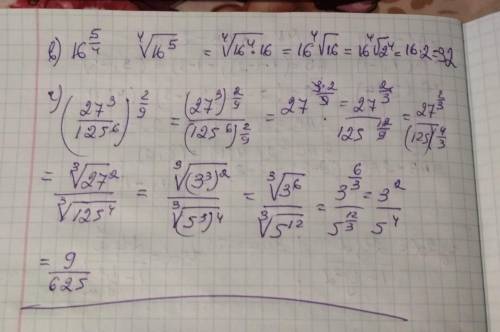 в) 16^(5/4) ⁴√(16⁵) = ⁴√(16⁴·16) = 16 ⁴√16 = 16 ⁴√(2⁴) = 16·2 = 32
г) (27³/125⁶)^(2/9) = (27³)^(2/9)/(125⁶)^(2/9) = 27^(3·2/9) / 125^(12/9) = 27^(2/3) = 27^(2/3)/(125)^(4/3)
= ³√(27²)/³√(125⁴) = ³√((3³)²)/³√((5³)⁴) = ³√(3⁶)/³√(5¹²) = 3^(6/3)/5^(12/3) = 3²/5⁴
= 9/625